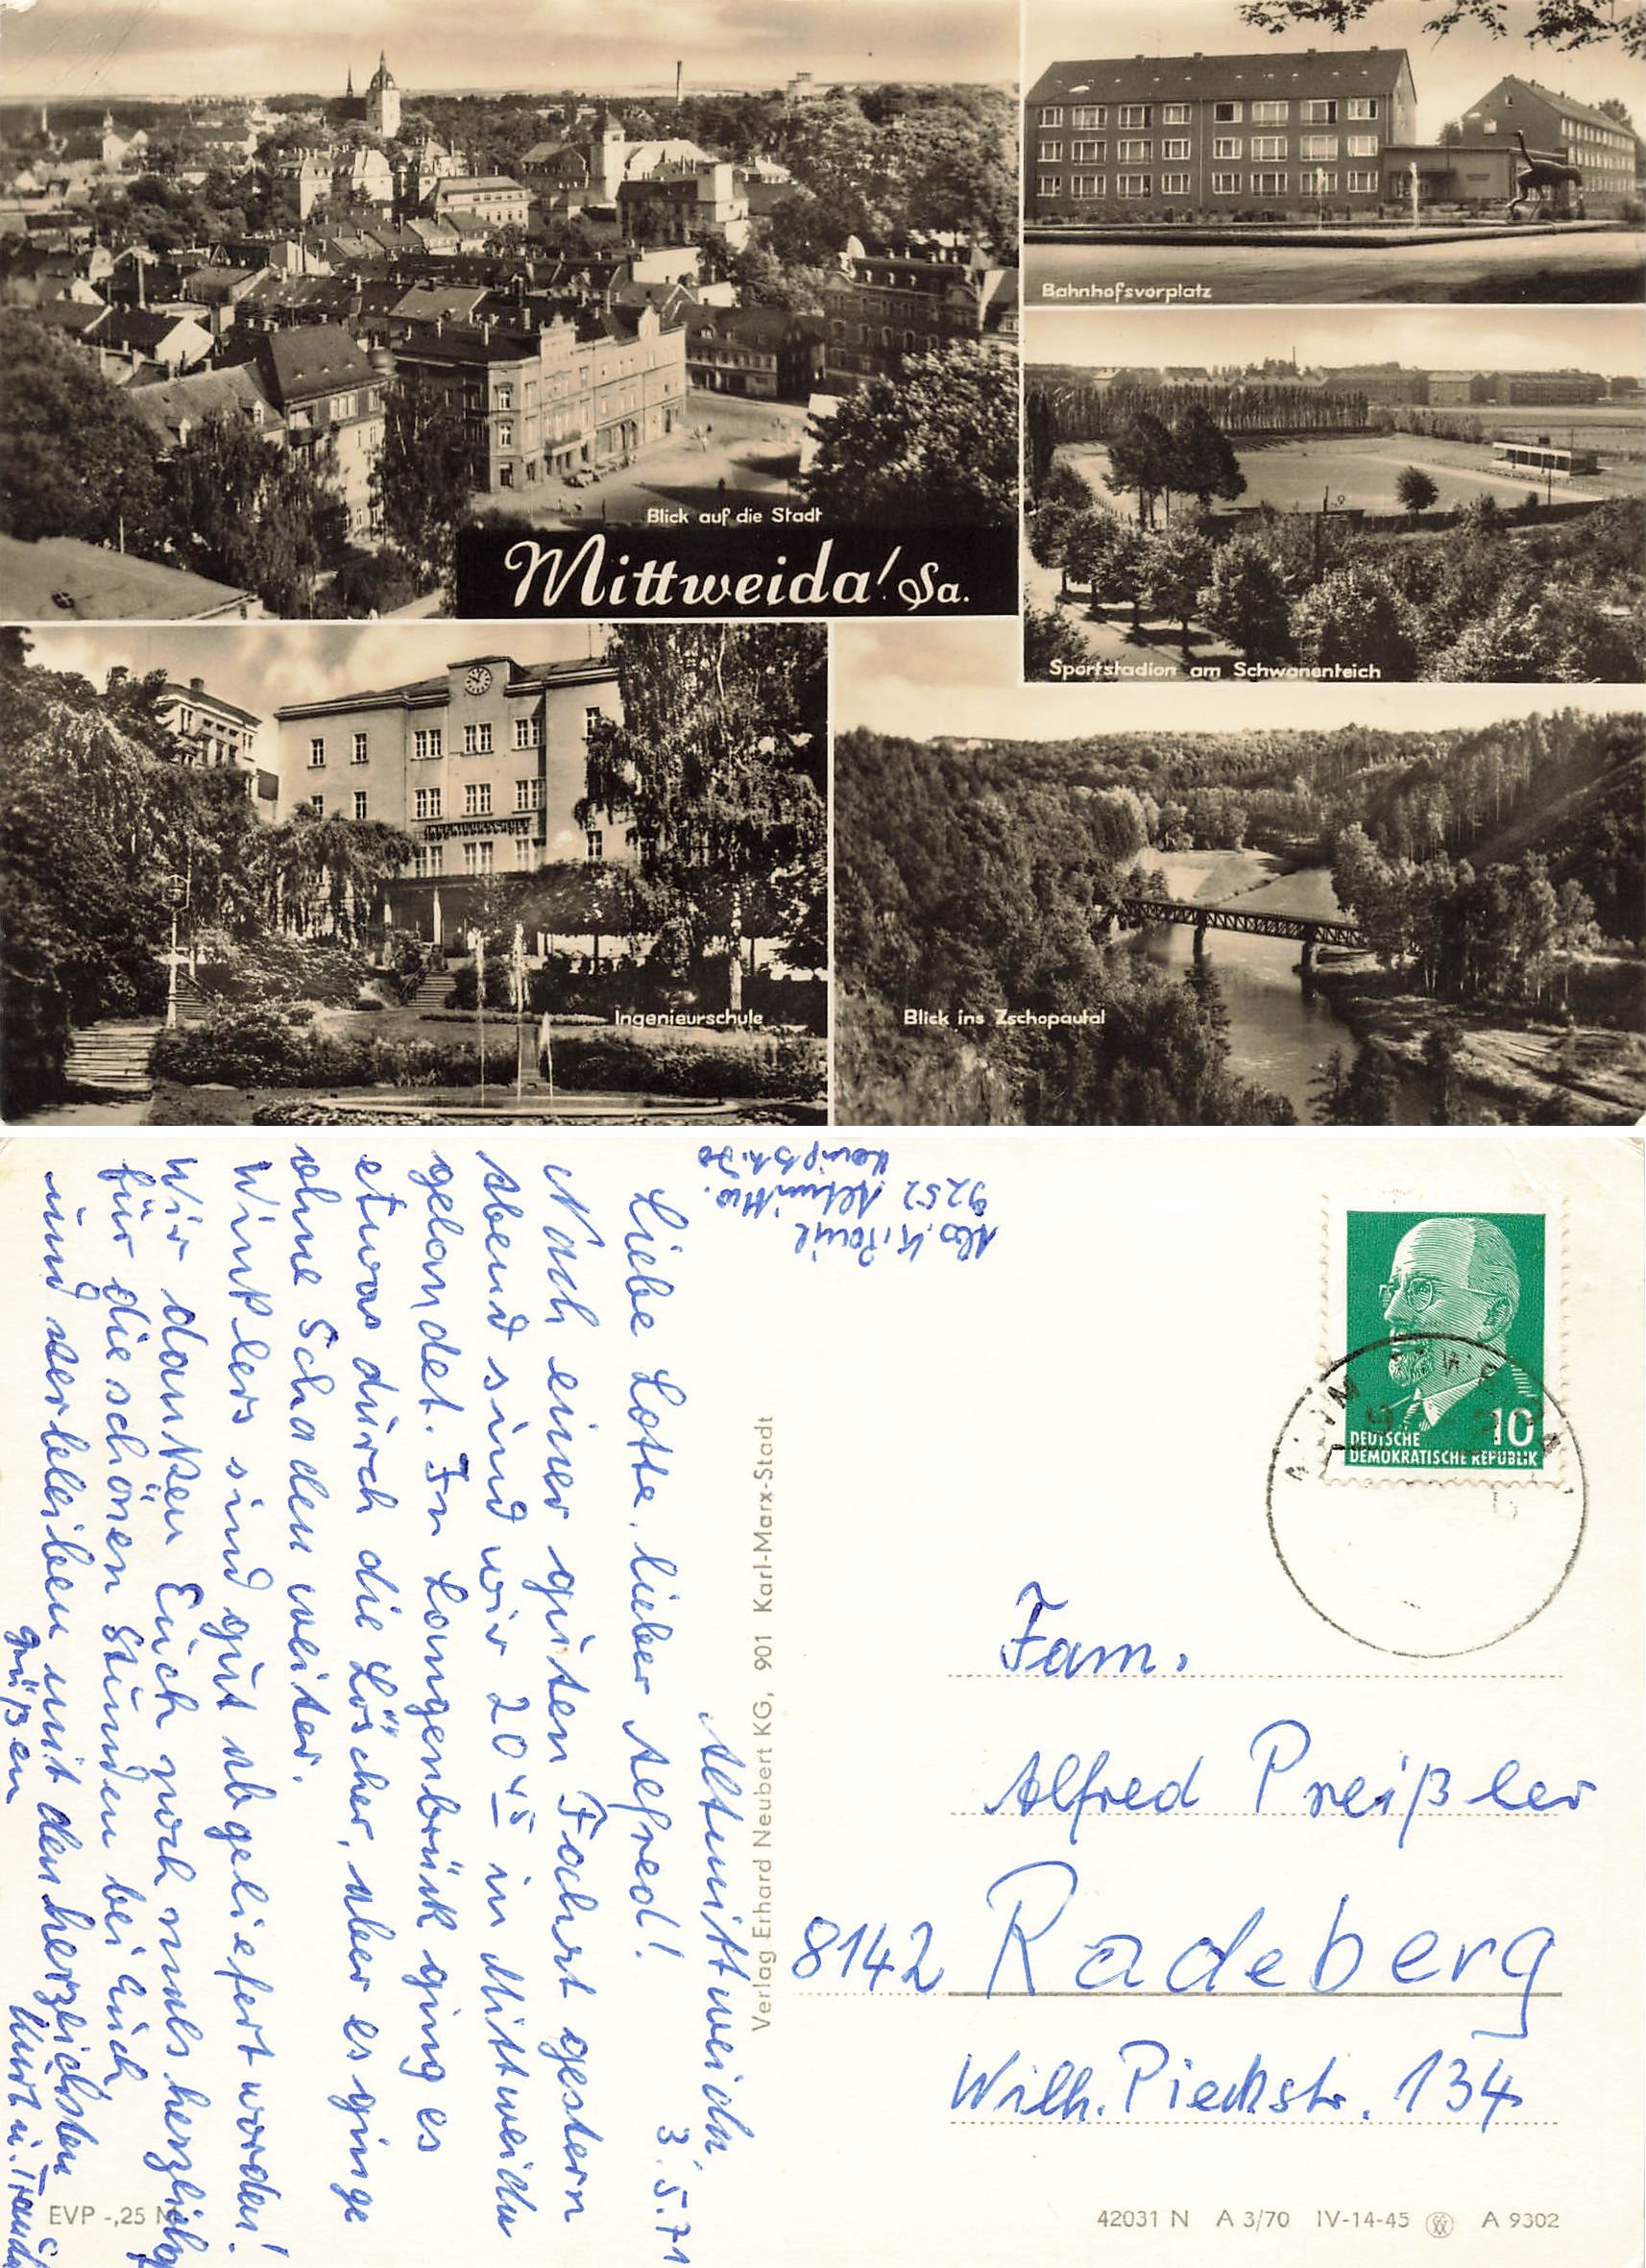 Blick auf die Stadt
Mittweida/Sa.
Bahnhofsvorplatz
Sportstadion am Schwanenteich
INGENIEURSCHULE
Ingenieurschule
Blick ins Zschopautal
Altmittweida,
3.5.71
Liebe Lotte, lieber Alfred!
Nach einer guten Fahrt gestern
abend sind wir 20 45 in Mittweida
gelandet. In Langenbrück ging es
etwas durch die Löscher, aber es ginge
ohne Schaden weiter.
Winklers sind gut abgeliefert worden!
Wir danken Euch noch mals herzlich
für die schönen Stunden bei Euch
und verbleiben mit den herzlichsten
Grüßen
Kurt u.
Abs. K.
9252 Altmittw.
Verlag Erhard Neubert KG, 901 Karl-Marx-Stadt
10
DEUTSCHE
DEMOKRATISCHE REPUBLIK
Fam.
Alfred Preißler
8142 Radeberg
Wilh. Pieckstr. 134
EVP -,25 M
42031 N A 3/70 IV-14-45 A 9302